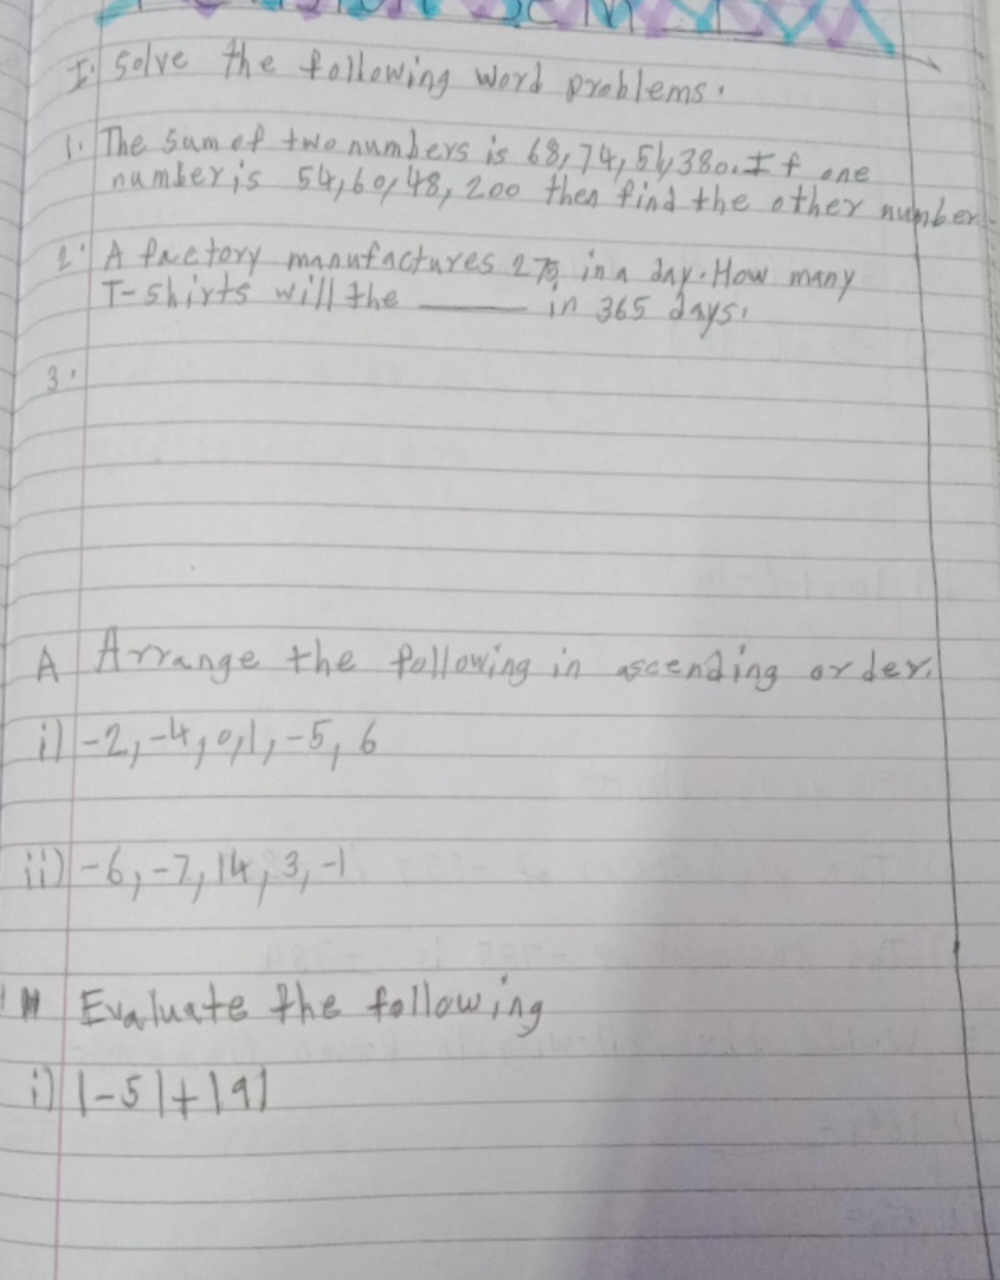 I. Solve the following word problems.
1. The sum of two numbers is 68,74,51,380. If one
number is 54,60,48,200 then find the other number.
2. A factory manufactures 275 in a day. How many
T-shirts will the ______ in 365 days.
3.
A Arrange the following in ascending order.
i) -2, -4, 0, 1, -5, 6
ii) -6, -7, 14, 3, -1
Evaluate the following
i) |-5|+|9|